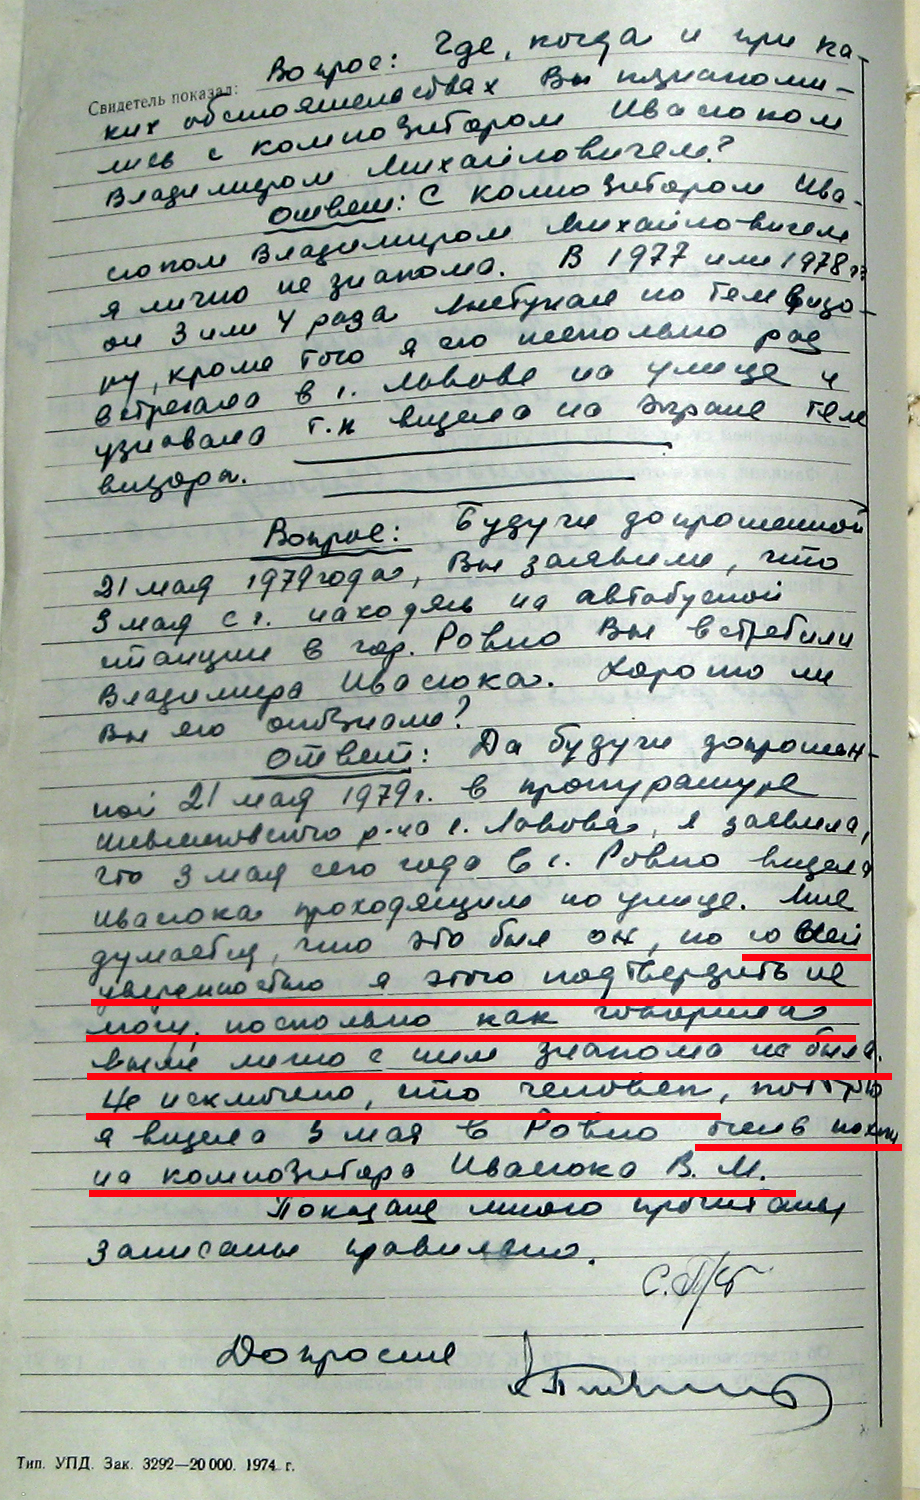 Вопрос: Где, когда и при ка-
Свидетель показал:
ких обстоятельствах Вы познакоми-
лись с композитором Ивасюком
Владимиром Михайловичем?
Ответ: С композитором Ива-
сюком Владимиром Михайловичем
я лично не знакома. В 1977 или 1978 гг
он 3 или 4 раза выступал по телевизо-
ру, кроме того я его несколько раз
встречала в г. Львове на улице и
узнавала т.к видела на экране теле
визора.
Вопрос: Будучи допрошенной
21 мая 1979 года, Вы заявили, что
3 мая с г. находясь на автобусной
станции в гор. Ровно Вы встретили
Владимира Ивасюка. Хорошо ли
Вы его опознали?
Ответ: Да будучи допрошен-
ной 21 мая 1979г. в прокуратуре
Шевченковского р-на г. Львова, я заявила,
что 3 мая сего года в г. Ровно видела
Ивасюка проходящим по улице. Мне
думается, что это был он, но со всей
уверенностью я этого подтвердить не
могу, поскольку как говорила
выше лично с ним знакома не была.
Не исключено, что человек, которого
я видела 3 мая в Ровно очень похож
на композитора Ивасюка В. М.
Показания мною прочитаны
записаны правильно.
Допросил
Тип. УПД. Зак. 3292—20 000. 1974 г.